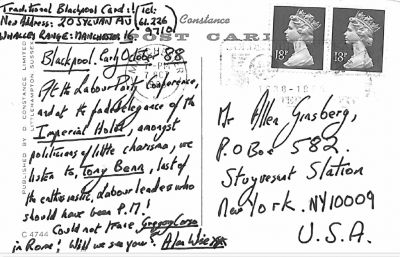 Traditional Blackpool Card: Tel:
New Address: 20 SYLVAN AV 61.226
WHALLEY RANGE: MANCHESTER 16 9710
Constance
POST CARD
Blackpool. Early October 88
At the Labour Party Conference,
and at the faded elegance of the
Imperial Hotel, amongst
politicians of little charisma, we
listen to Tony Benn, last of
the enthusiastic Labour leaders who
should have been P.M!
Could not trace Gregory Corso
in Rome! Will we see you? Alan Wise xxx
PUBLISHED BY D. CONSTANCE LIMITED
LITTLEHAMPTON, SUSSEX
C 4744
18P
18P
Mr Allen Ginsberg,
P.O Box 582.
Stuyvesant Station
New York. NY10009
U.S.A.